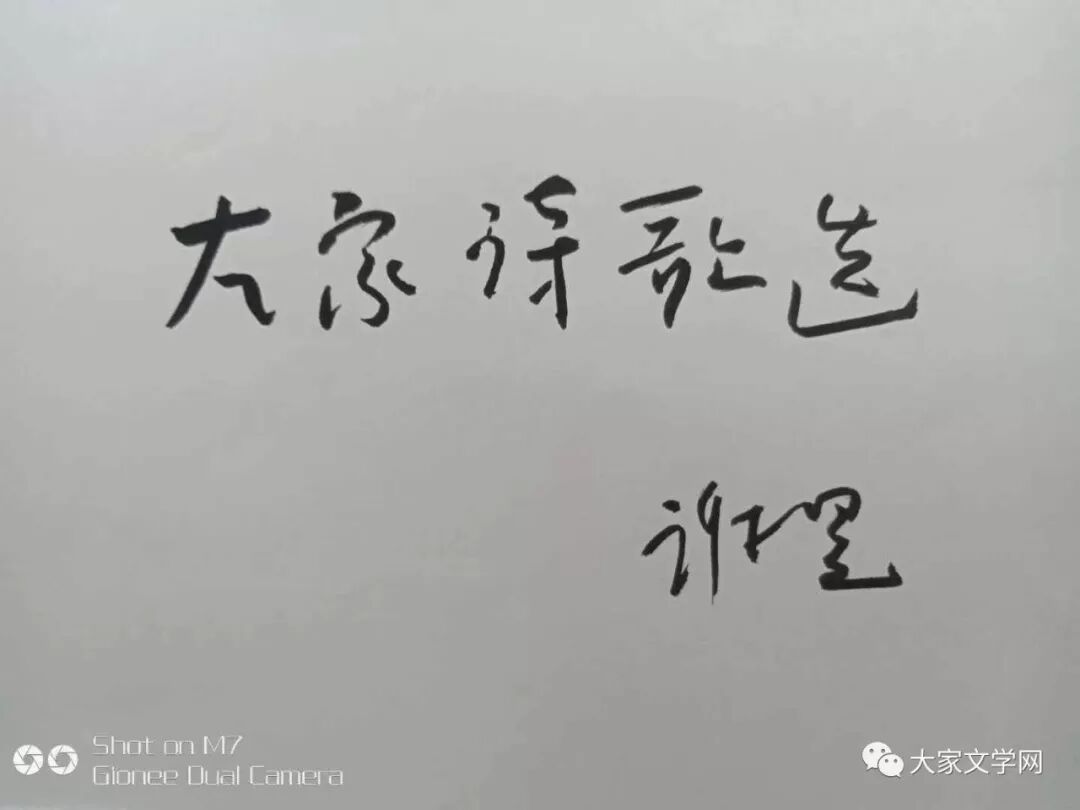 大家诗歌选
谢冕
Shot on M7
Gionee Dual Camera
大家文学网